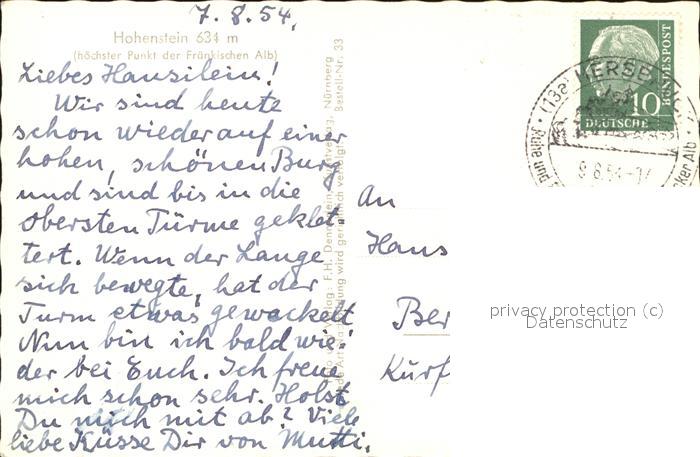 7. 8. 54.
Hohenstein 634 m
(höchster Punkt der Fränkischen Alb)
Liebes Hansilein!
Wir sind heute
schon wieder auf einer
hohen, schönen Burg
und sind bis in die
obersten Türme geklet-
tert. Wenn der Lange
sich bewegte, hat der
Turm etwas gewackelt
Nun bin ich bald wie-
der bei Euch. Ich freue
mich schon sehr. Holst
Du mich mit ab? Viele
liebe Küsse Dir von Mutti.
Verlag: F.H.
Nürnberg
Bestell-Nr. 33
An
Hans
Ber
Kurf
privacy protection (c)
Datenschutz
10
DEUTSCHE
BUNDESPOST
(13a) HERSBRUCK
8.8.54-17
Ruhe und